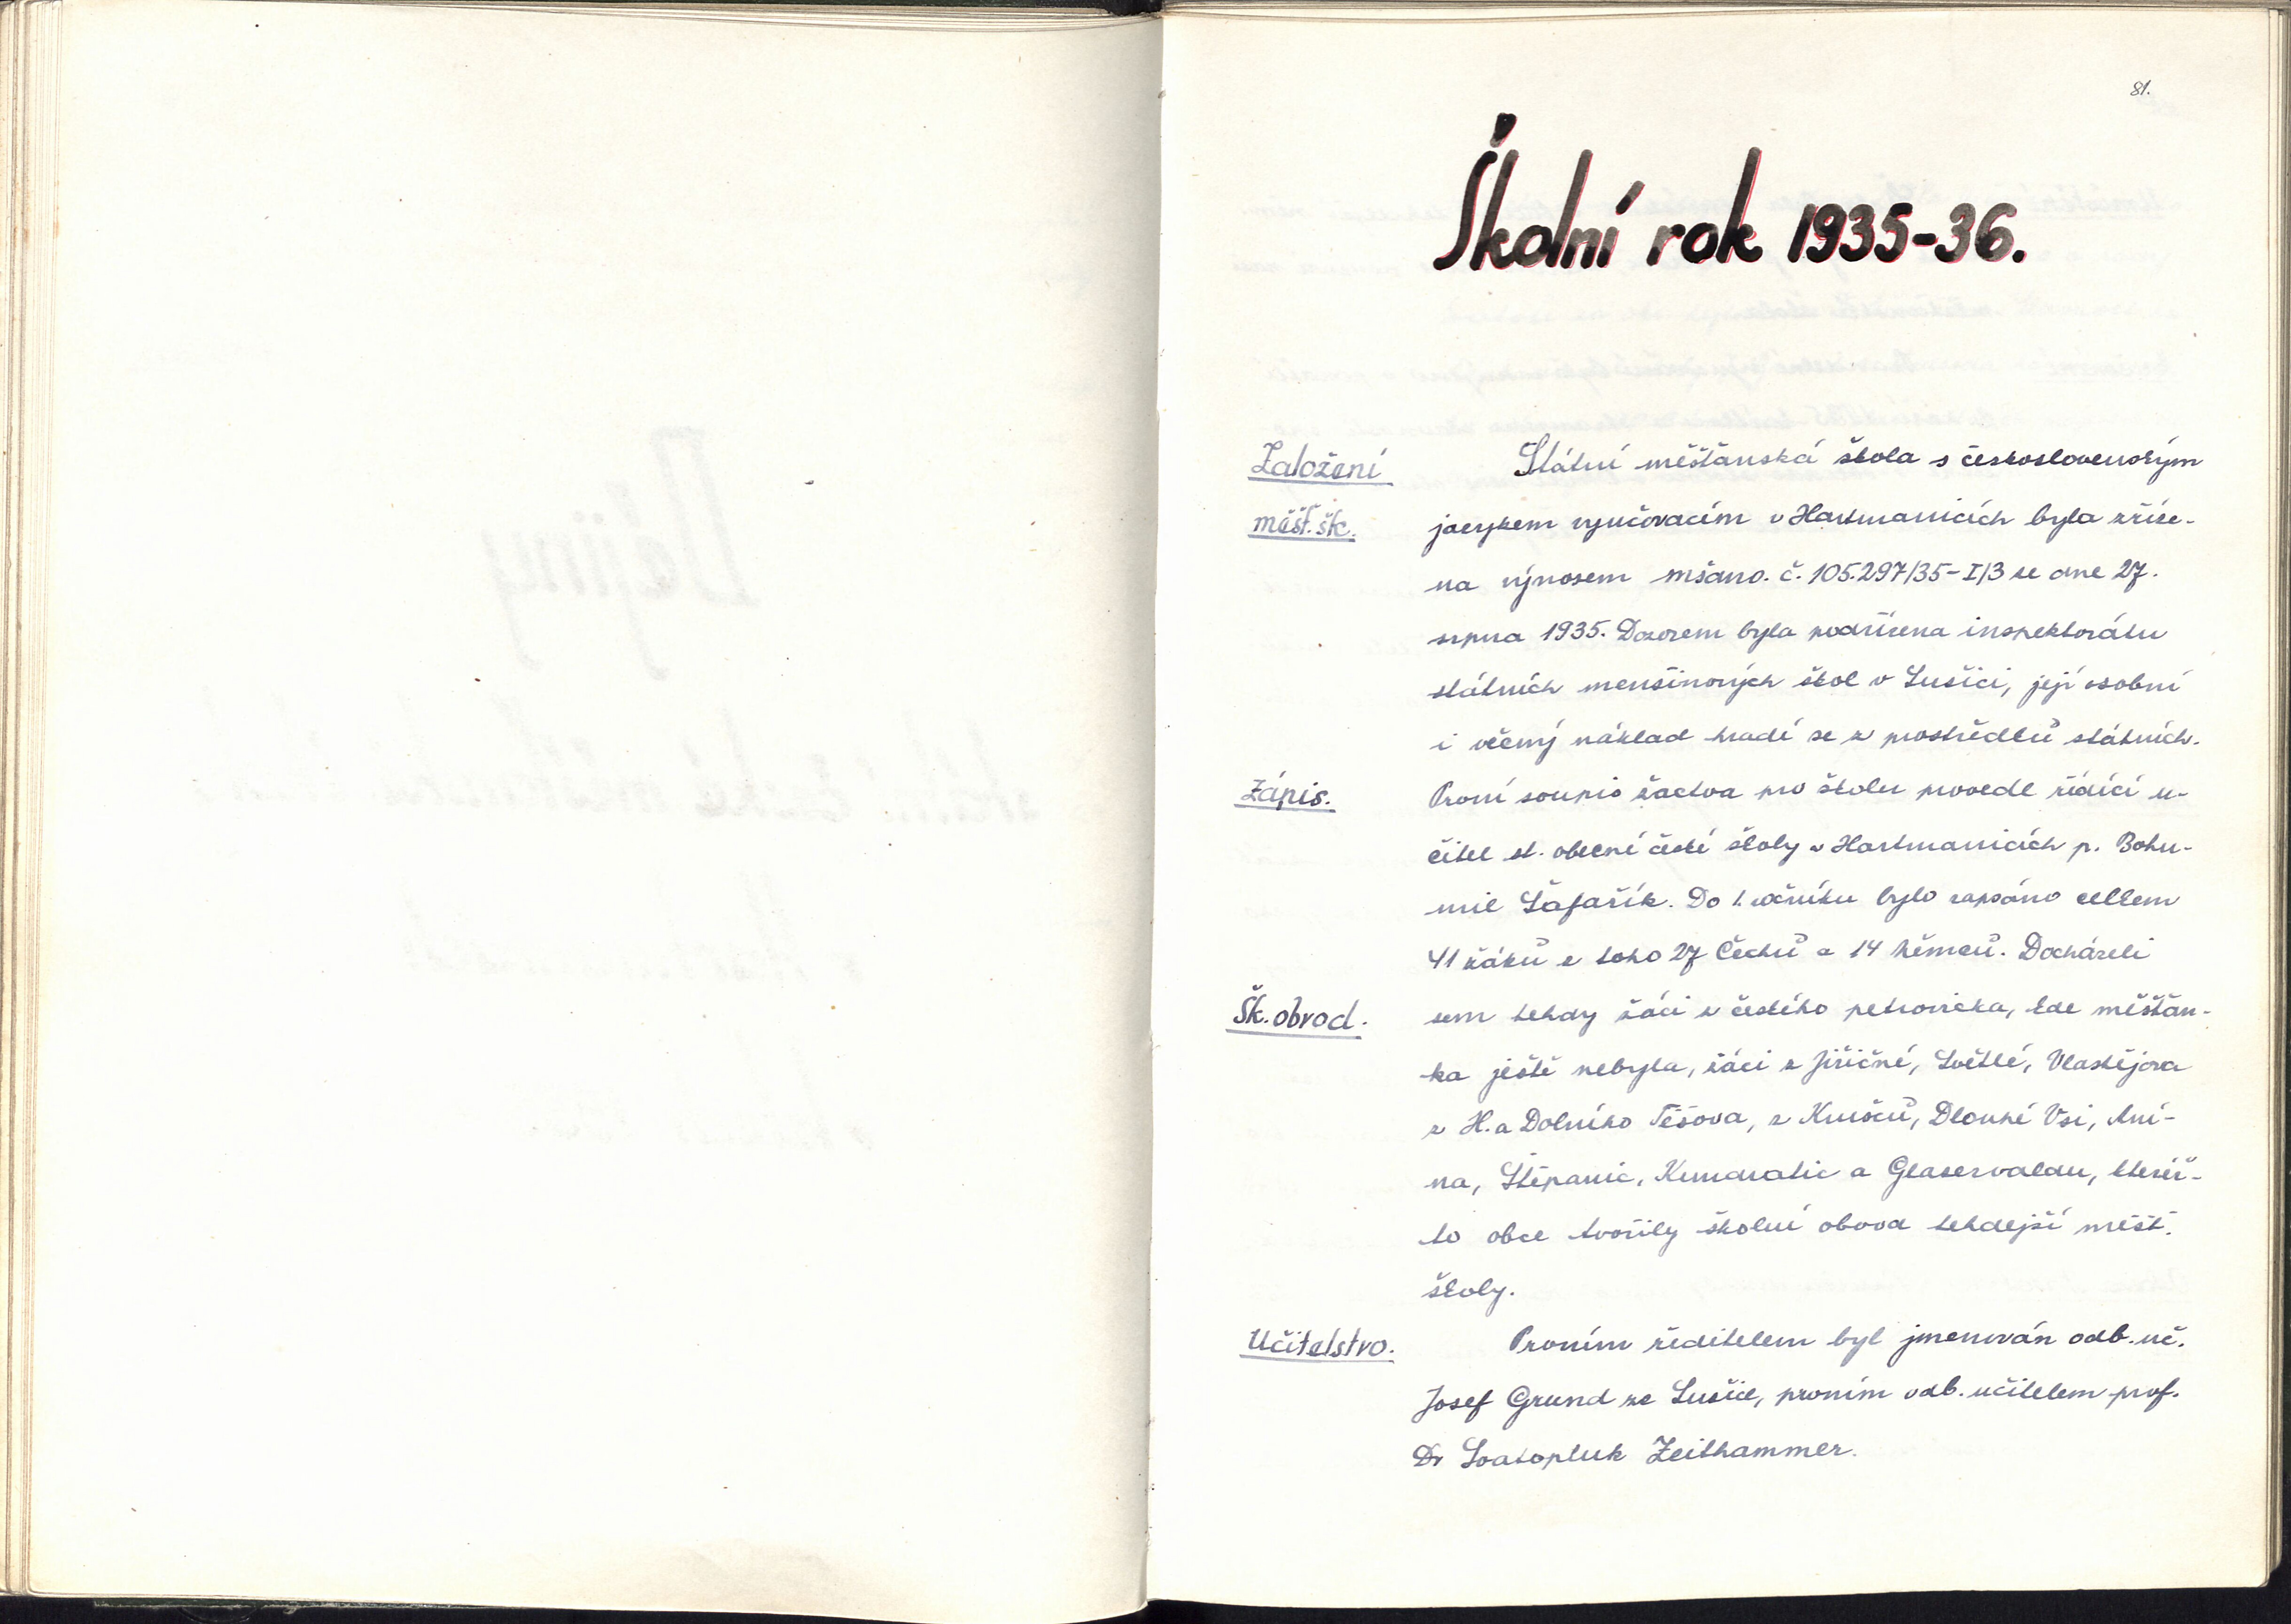 81.
Školní rok 1935-36.
Založení
měšť. šk.
Státní měšťanská škola s československým
jazykem vyučovacím v Hartmanicích byla zříze-
na výnosem mšano. č. 105.297/35-I/3 ze dne 27.
srpna 1935. Dozorem byla podřízena inspektorátu
státních menšinových škol v Sušici, její osobní
i věcný náklad hradí se z prostředků státních.
Zápis.
První soupis žactva pro školu provedl řídící u-
čitel st. obecné české školy v Hartmanicích p. Bohu-
mil Šafařík. Do 1. ročníku bylo zapsáno celkem
41 žáků z toho 27 Čechů a 14 Němců. Docházeli
Šk. obvod.
sem tehdy žáci z českého petrovicka, kde měšťan-
ka ještě nebyla, žáci z Jiřičné, Světlé, Vlastějova
z H. a Dolního Těšova, z Knušců, Dlouhé Vsi, Aní-
na, Štěpanic, Kundratic a Glaserwaldu, kteréž-
to obce tvořily školní obvod tehdejší měšť.
školy.
Učitelstvo.
Prvním ředitelem byl jmenován odb. uč.
Josef Grund ze Sušice, prvním odb. učitelem prof.
Dr Svatopluk Zeithammer.